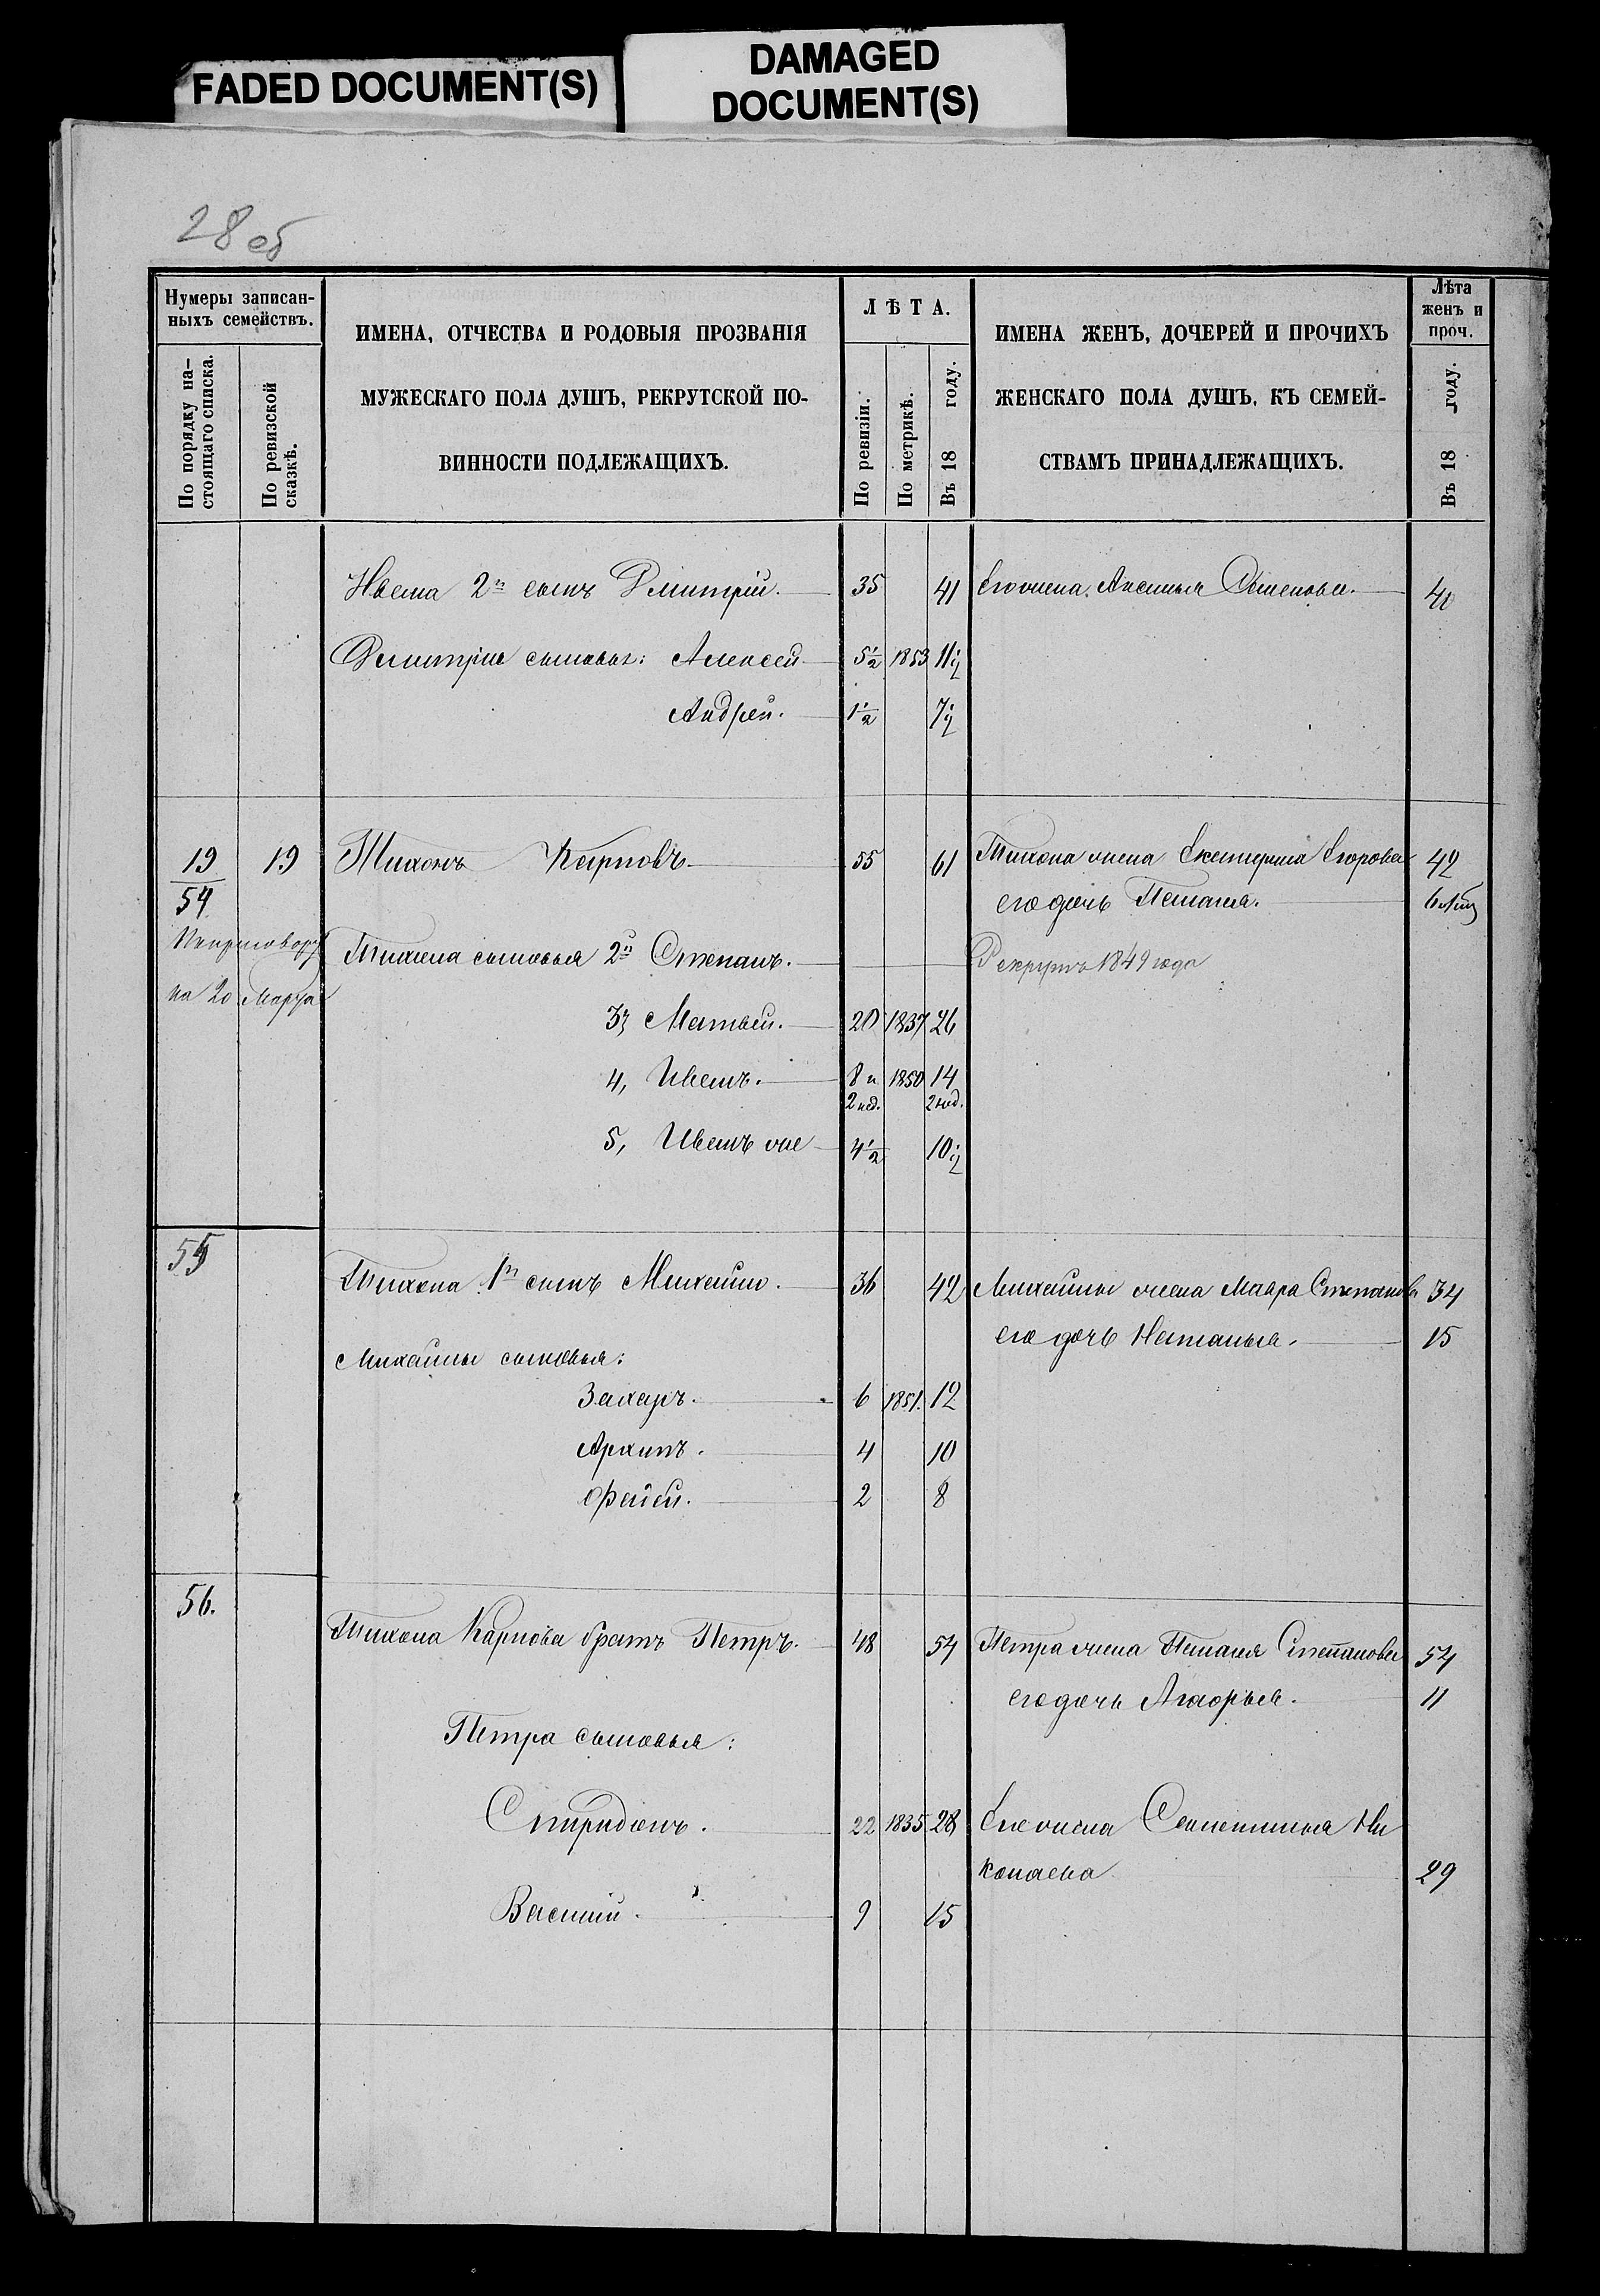 FADED DOCUMENT(S)
DAMAGED
DOCUMENT(S)
28 об
Нумеры записан-
ныхъ семействъ.
По порядку на-
стоящаго списка.
По ревизской
сказкѣ.
ИМЕНА, ОТЧЕСТВА И РОДОВЫЯ ПРОЗВАНІЯ
МУЖЕСКАГО ПОЛА ДУШЪ, РЕКРУТСКОЙ ПО-
ВИННОСТИ ПОДЛЕЖАЩИХЪ.
ЛѢТА.
По ревизіи.
По метрикѣ.
Въ 18 году.
ИМЕНА ЖЕНЪ, ДОЧЕРЕЙ И ПРОЧИХЪ
ЖЕНСКАГО ПОЛА ДУШЪ, КЪ СЕМЕЙ-
СТВАМЪ ПРИНАДЛЕЖАЩИХЪ.
Лѣта
женъ и
проч.
Въ 18 году.
2й сынъ Дмитрій. 35 41 Его жена Аксинья 40
Дмитрія сыновья: Алексей 5½ 1853 11½
Андрей. 1½ 7½
19 19 Тихонъ Карповъ 55 61 Тихона жена Екатерина Егорова 42
54 его дочь Пелагея.
По приговору Тихона сыновья 2й Степанъ. Рекрутъ 1849 года
на 20 Марта
3, Матвей. 20 1837 26
4, Иванъ. 8 и 1850 14
2 нед. 2 нед.
5, Иванъ же 4½ 10½
55
Тихона 1й сынъ Михайло. 36 42 Михайлы жена Мавра Степанова 34
его дочь Наталья. 15
Михайлы сыновья:
Захаръ. 6 1851. 12
Архипъ. 4 10
Фатей. 2 8
56.
Тихона Карпова братъ Петръ. 48 54 Петра жена Пелагея Степанова 54
его дочь 11
Петра сыновья:
Спиридонъ. 22 1835 28 Его жена Ни
колаева 29
Василій. 9 15